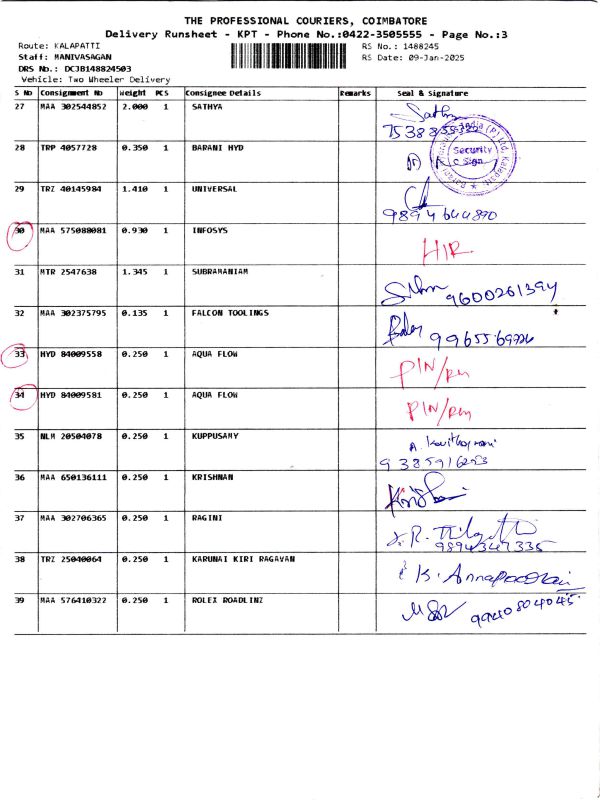 THE PROFESSIONAL COURIERS, COIMBATORE
Delivery Runsheet - KPT - Phone No.:0422-3505555 - Page No.:3
Route: KALAPATTI RS No.: 1488245
Staff: MANIVASAGAN RS Date: 09-Jan-2025
DRS No.: DCJB148824503
Vehicle: Two Wheeler Delivery
S No Consignment No Weight PCS Consignee Details Remarks Seal & Signature
27 MAA 302544852 2.000 1 SATHYA
28 TRP 4057728 0.350 1 BARANI HYD
Security
Sign
29 TRZ 40145984 1.410 1 UNIVERSAL
9894644890
30 MAA 575088081 0.930 1 INFOSYS
31 MTR 2547638 1.345 1 SUBRAMANIAM
9600261394
32 MAA 302375795 0.135 1 FALCON TOOLINGS
33 HYD 84009558 0.250 1 AQUA FLOW PIN/
34 HYD 84009581 0.250 1 AQUA FLOW PIN/
35 NLM 20504078 0.250 1 KUPPUSAMY
36 MAA 650136111 0.250 1 KRISHNAN
37 MAA 302706365 0.250 1 RAGINI
38 TRZ 25040064 0.250 1 KARUNAI KIRI RAGAVAN
39 MAA 576410322 0.250 1 ROLEX ROADLINZ
9940804045